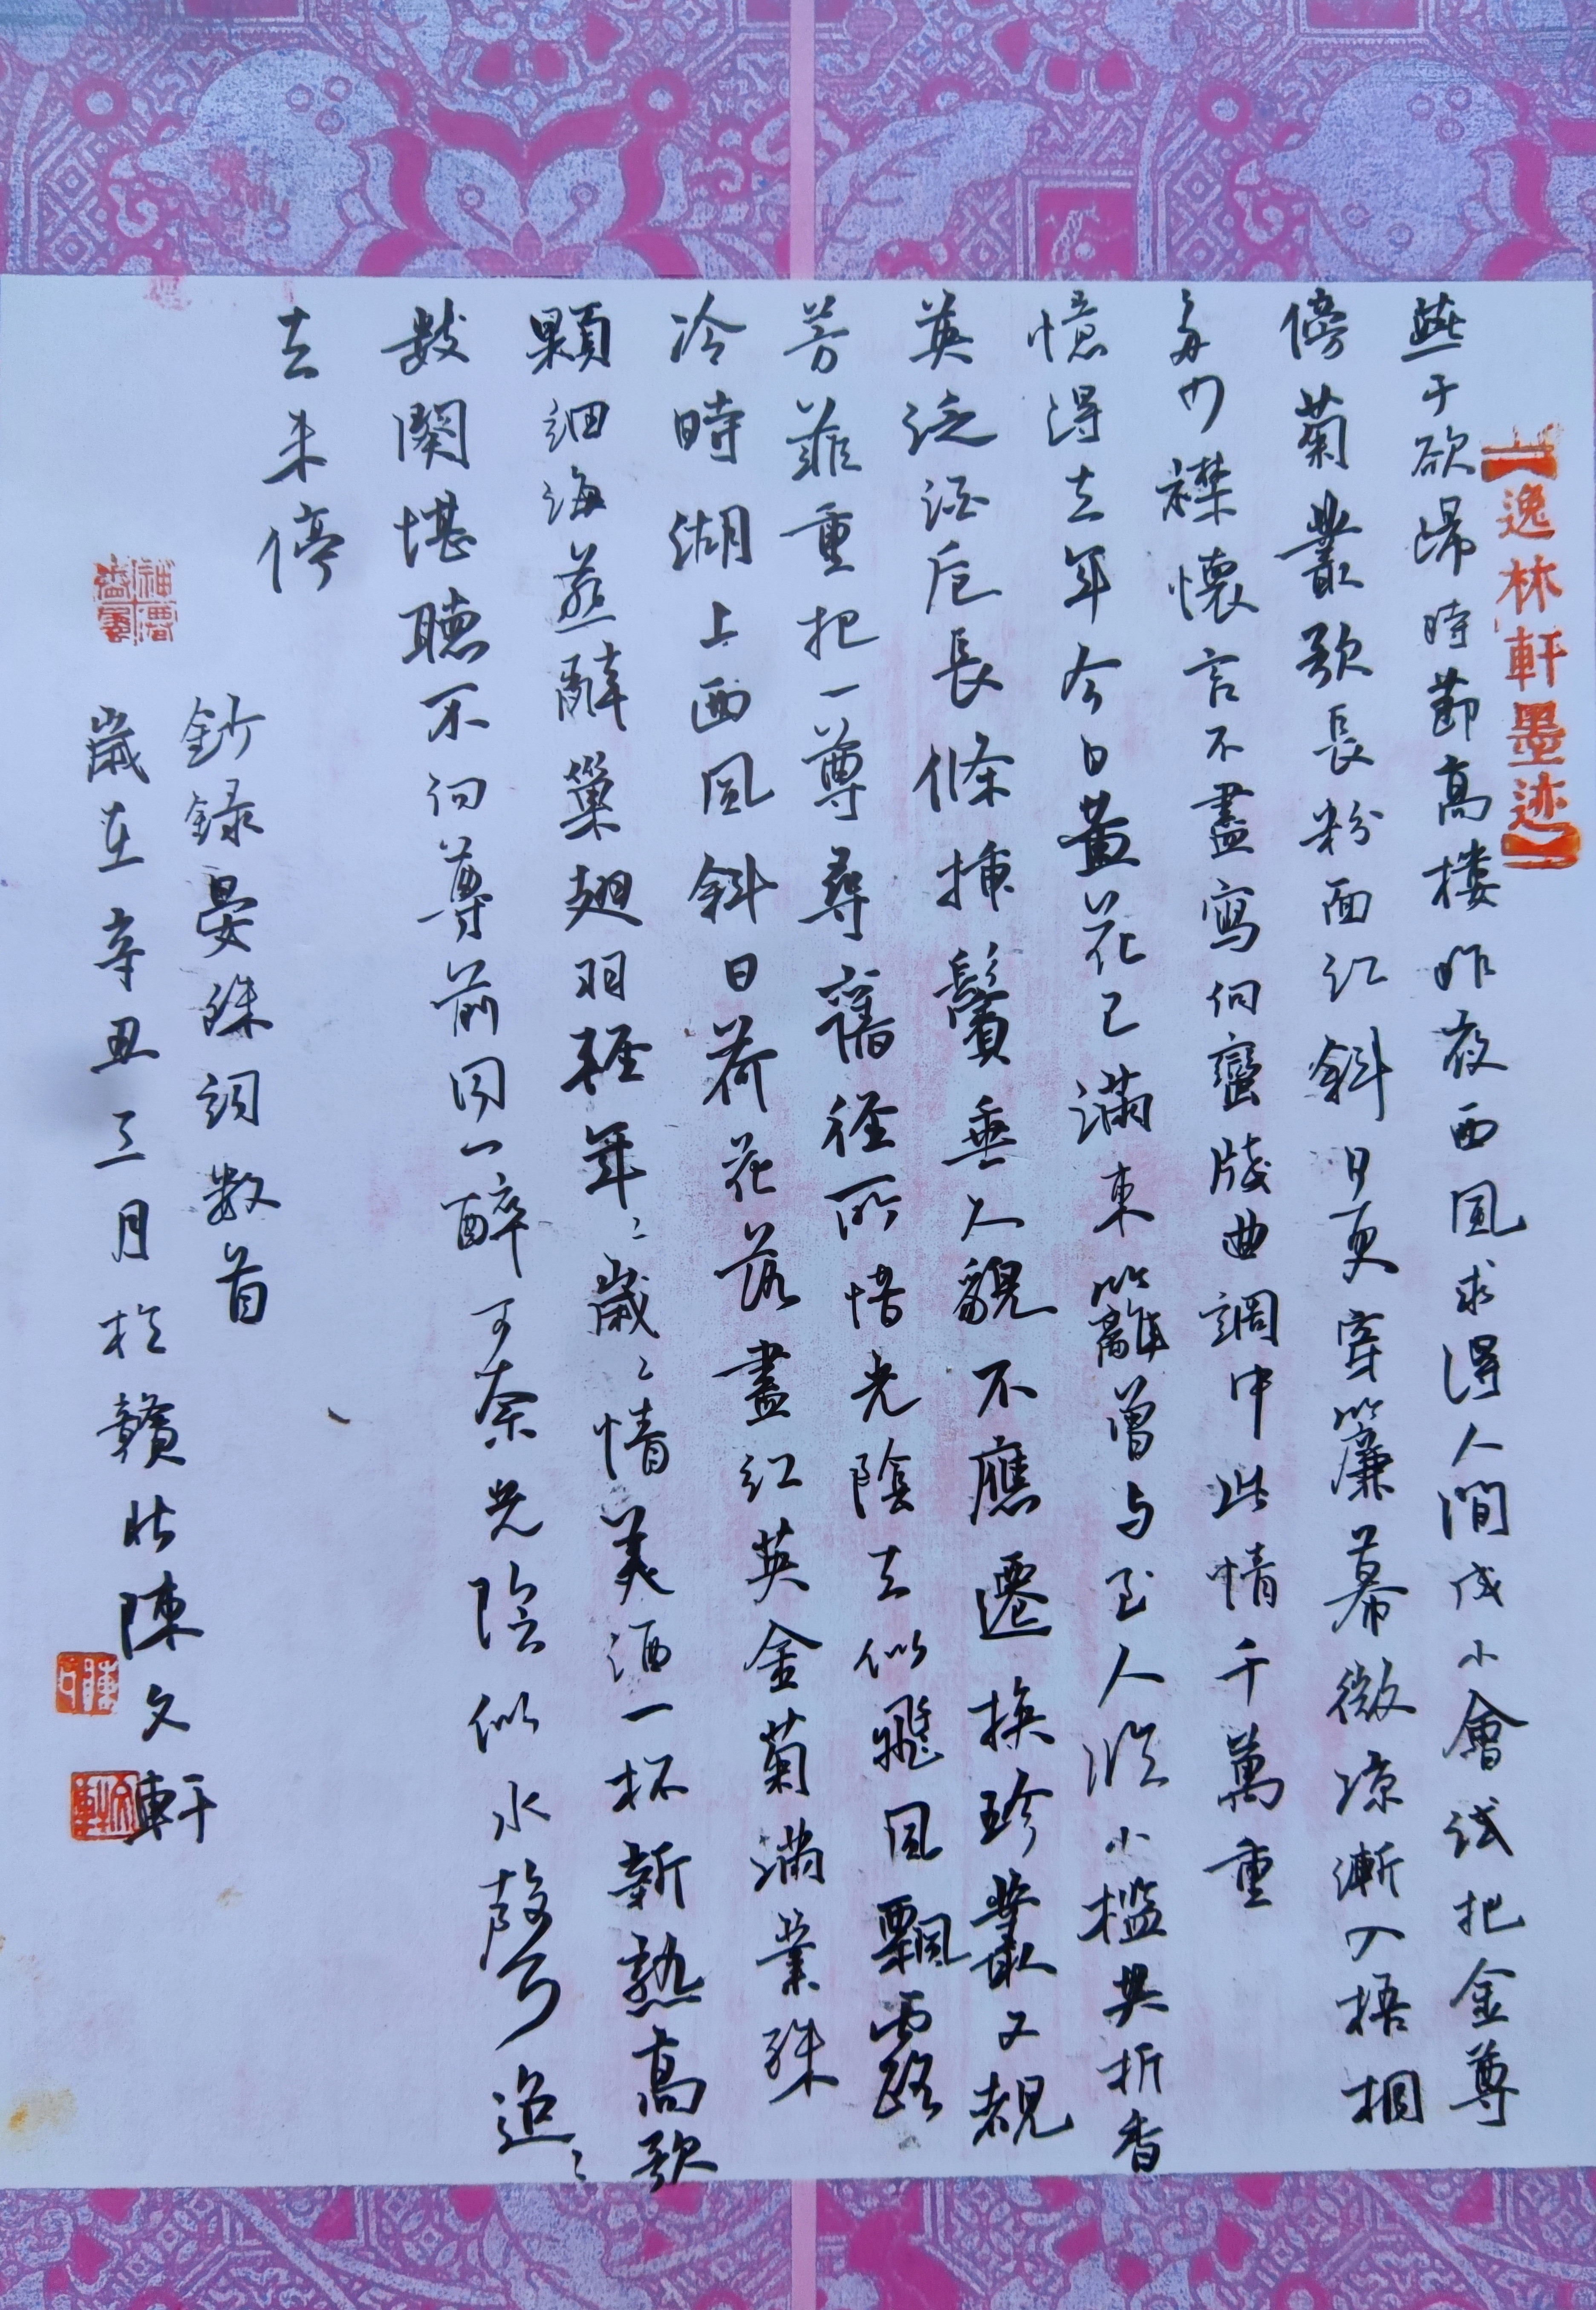 【逸林軒墨迹】
燕子欲歸時節高樓昨夜西風求得人間成小會試把金尊
傍菊叢歌長粉面紅斜日更穿簾幕微涼漸入梧桐
多少襟懷言不盡寫向蠻牋曲調中此情千萬重
憶得去年今日黃花已滿東籬曾与玉人臨小檻共折香
英泛酒卮長條插鬢垂人貌不應遷換珍叢又覩
芳菲重把一尊尋舊径所惜光陰去似飛風飄露
冷時湖上西風斜日荷花落盡紅英金菊滿叢珠
顆細海燕辭巢翅羽輕年〻歲〻情美酒一杯新熟高歌
數闋堪聽不向尊前同一醉可奈光陰似水聲迢〻
去未停
鈔録晏殊詞数首
歲在辛丑三月於贛北陳文軒